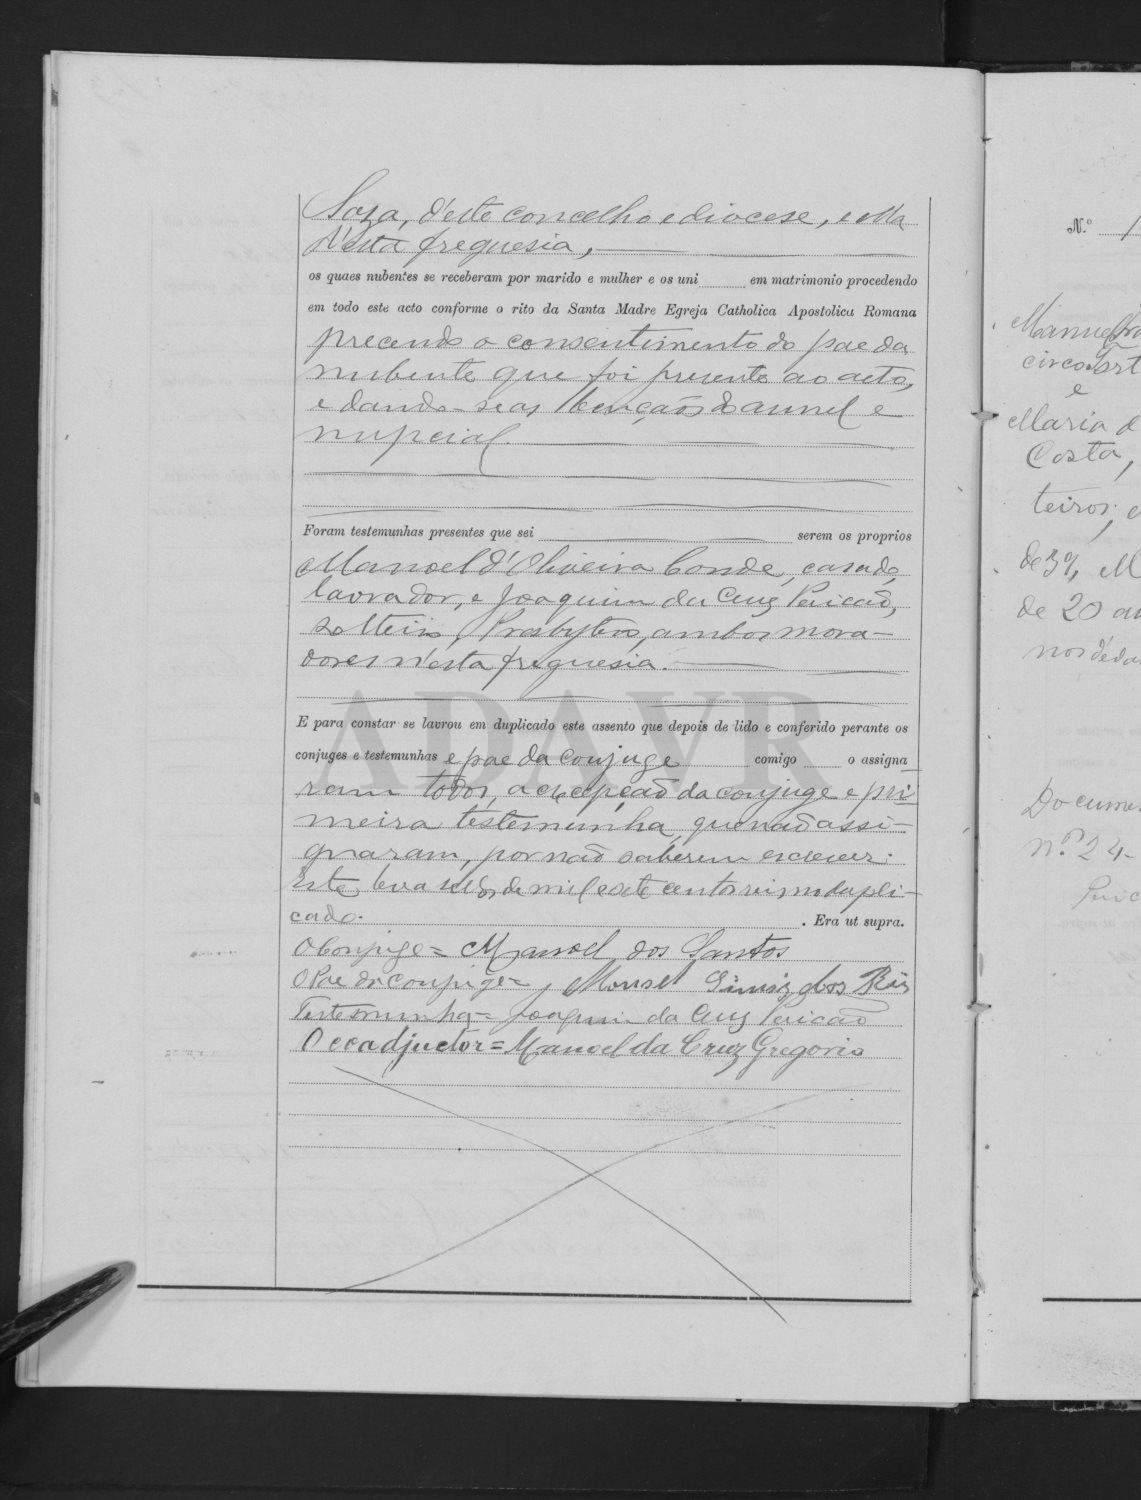 Soza, d'este concelho e diocese, e ella
d'esta freguesia,
os quaes nubentes se receberam por marido e mulher e os uni em matrimonio procedendo
em todo este acto conforme o rito da Santa Madre Egreja Catholica Apostolica Romana
precendo o consentimento do pae da
nubente que foi presente ao acto,
e dando-se as bençaõs do annel e
nupcial.
Foram testemunhas presentes que sei serem os proprios
Manoel d'Oliveira Conde, casado,
lavrador, e Joaquim da Cruz Pericaõ,
solteiro, Presbytero, ambos mora-
dores n'esta freguesia.
E para constar se lavrou em duplicado este assento que depois de lido e conferido perante os
conjuges e testemunhas e pae da conjuge comigo o assigna
ram todos, a excepçaõ da conjuge e pri-
meira testemunha, que naõ assi-
gnaram, por naõ saberem escrever.
Este leva sellos de mil e sete centos reis no dupli-
cado. . Era ut supra.
O Conjuge = Manoel dos Santos
O Pae da Conjuge = Manoel dos Reis
Testemunha = Joaquim da Cruz Pericaõ
O coadjuctor = Manoel da Cruz Gregorio
ADAVR
N.º 1
Manuel
circo
e
Maria d
Costa,
teiros, e
de 37, M
de 20 an
nos d'eda
Docume
n.os 24-